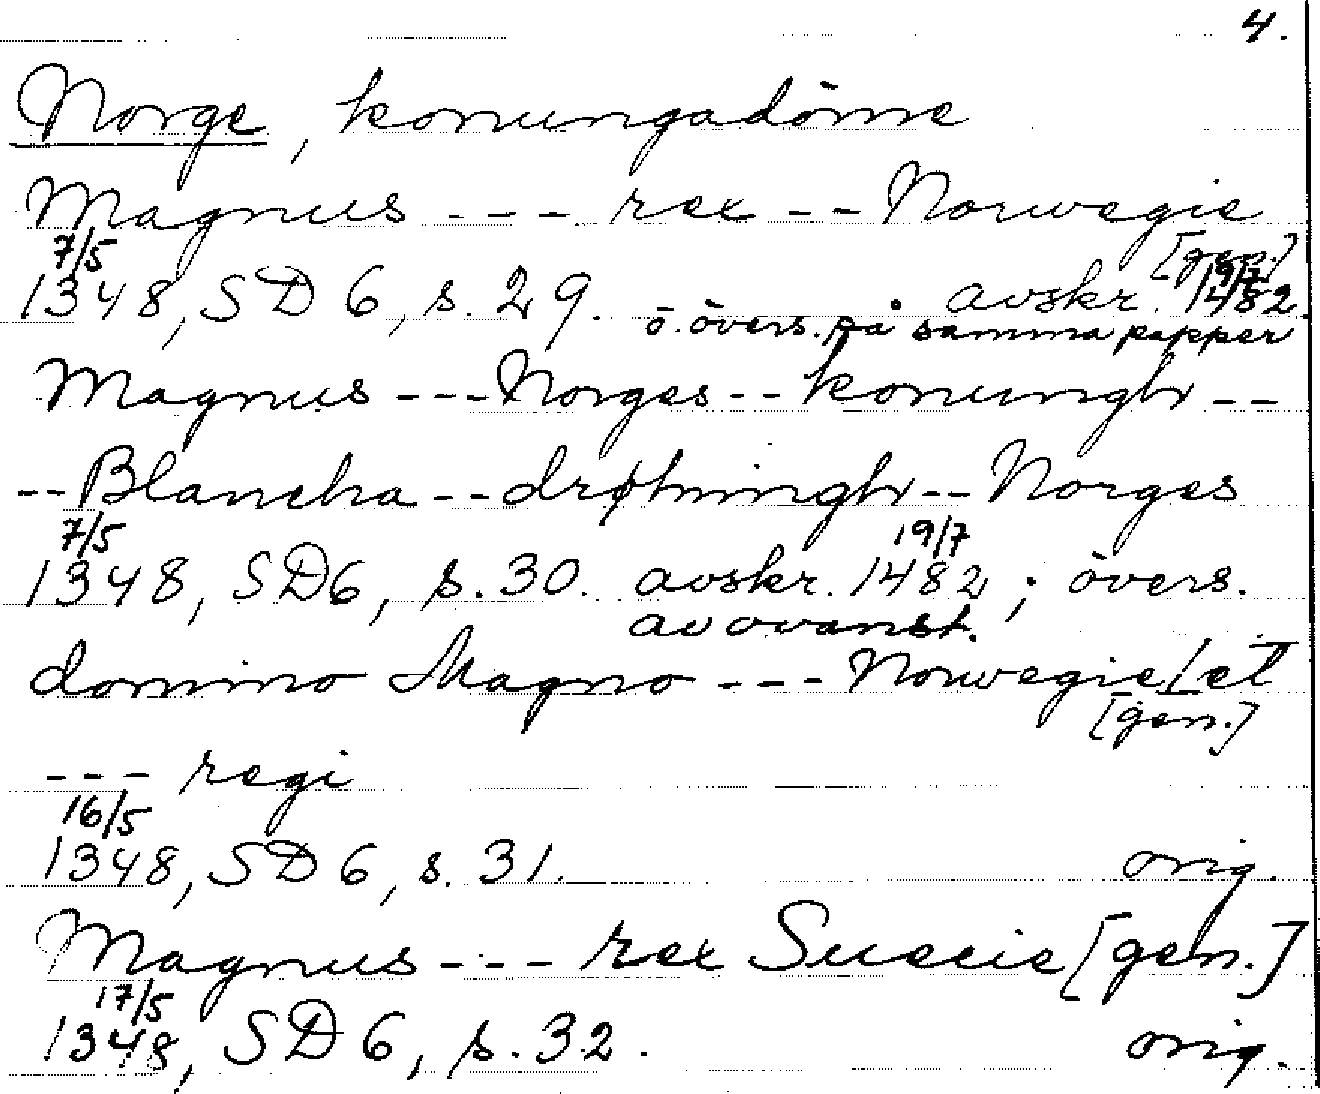 4.
Norge, konungadöme
Magnus --- rex -- Norwegie
[gen.]
7/5 19/7
1348, SD 6, s. 29. avskr. 1482
o. övers. på samma papper
Magnus --- Norges -- konungh --
-- Blancha -- drøtningh -- Norges
7/5 19/7
1348, SD 6, s. 30. avskr. 1482; övers.
av ovanst.
domino Magno --- Norwegie [et
[gen.]
--- regi
16/5
1348, SD 6, s. 31. orig.
Magnus --- rex Suecie [gen.]
17/5
1348, SD 6, s. 32. orig.